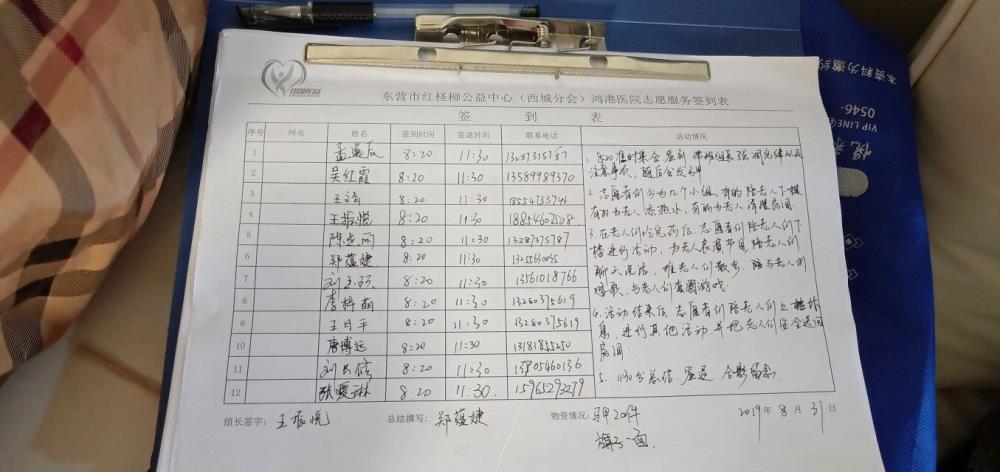 东营市红柽柳公益中心（西城分会）鸿港医院志愿服务签到表
签 到 表
序号 网名 姓名 签到时间 签退时间 联系电话 活动情况
1 8:20 11:30 13287315787
2 吴红霞 8:20 11:30 13589989370
3 王文 8:20 11:30 18554733746
4 王振悦 8:20 11:30 18854607528
5 8:20 11:30 13287375787
6 郑蕴婕 8:20 11:30
7 刘玉 8:20 11:30 13561018766
8 李梓萌 8:20 11:30 13280375619
9 王月平 8:20 11:30 13280375619
10 唐博远 8:20 11:30 13181835250
11 刘 8:20 11:30 13905460136
12 张爱琳 8:20 11:30 15965293279
1. 8:20准时集合签到
注意事项
2. 志愿者们分为几个小组，有的陪老人下楼
有的为老人添热水，有的为老人清理房间
3. 在老人们吃完药后，志愿者们陪老人们下
楼进行活动，为老人表演节目，陪老人们
聊天说话，推老人们散步，陪老人们
唱歌，与老人们做游戏.
4. 活动结束后，志愿者们陪老人们上楼休
息，进行其他活动并把老人们安全送回
房间.
5. 11:30分总结 签退 合影留念.
组长签字： 王振悦 总结撰写： 郑蕴婕 物资情况： 马甲20件 2019年8月31日
旗子一面
本资料为邀约
VIP LINE(
0546-